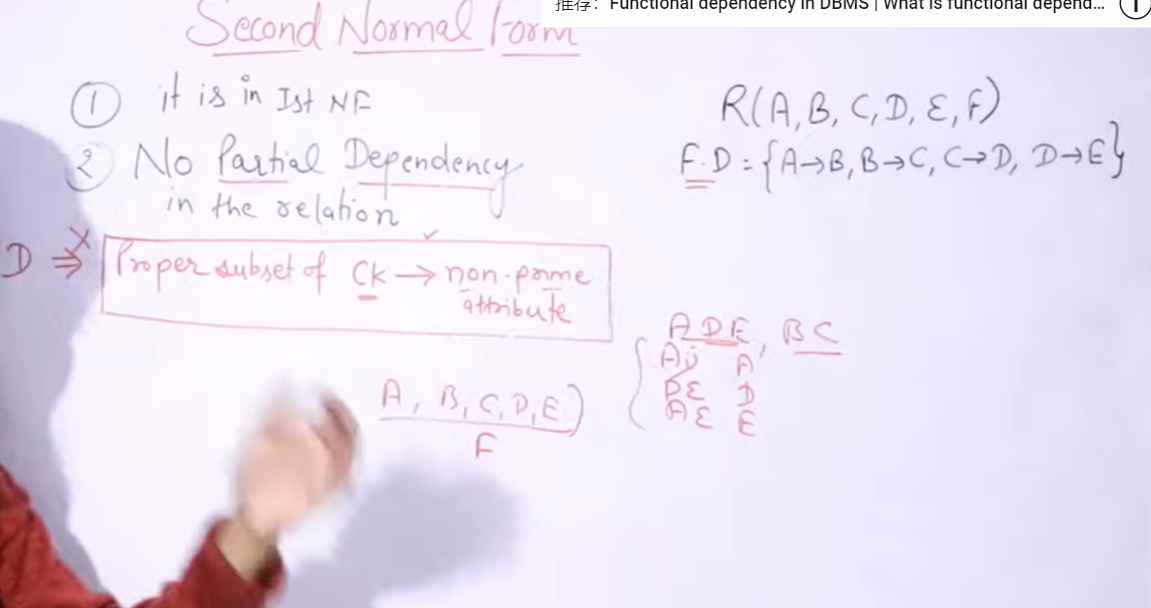 推荐: Functional dependency in DBMS | What is functional depend...
Second Normal Form
① it is in Ist NF
② No Partial Dependency
in the relation
D ⇒ Proper subset of Ck → non-prime
attribute
R(A, B, C, D, E, F)
F.D = {A→B, B→C, C→D, D→E}
ADE, BC
AD A
DE D
AE E
A, B, C, D, E)
F